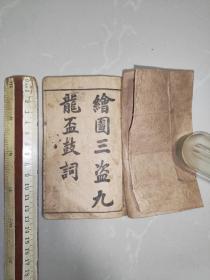 繪圖三盗九
龍盃鼓詞